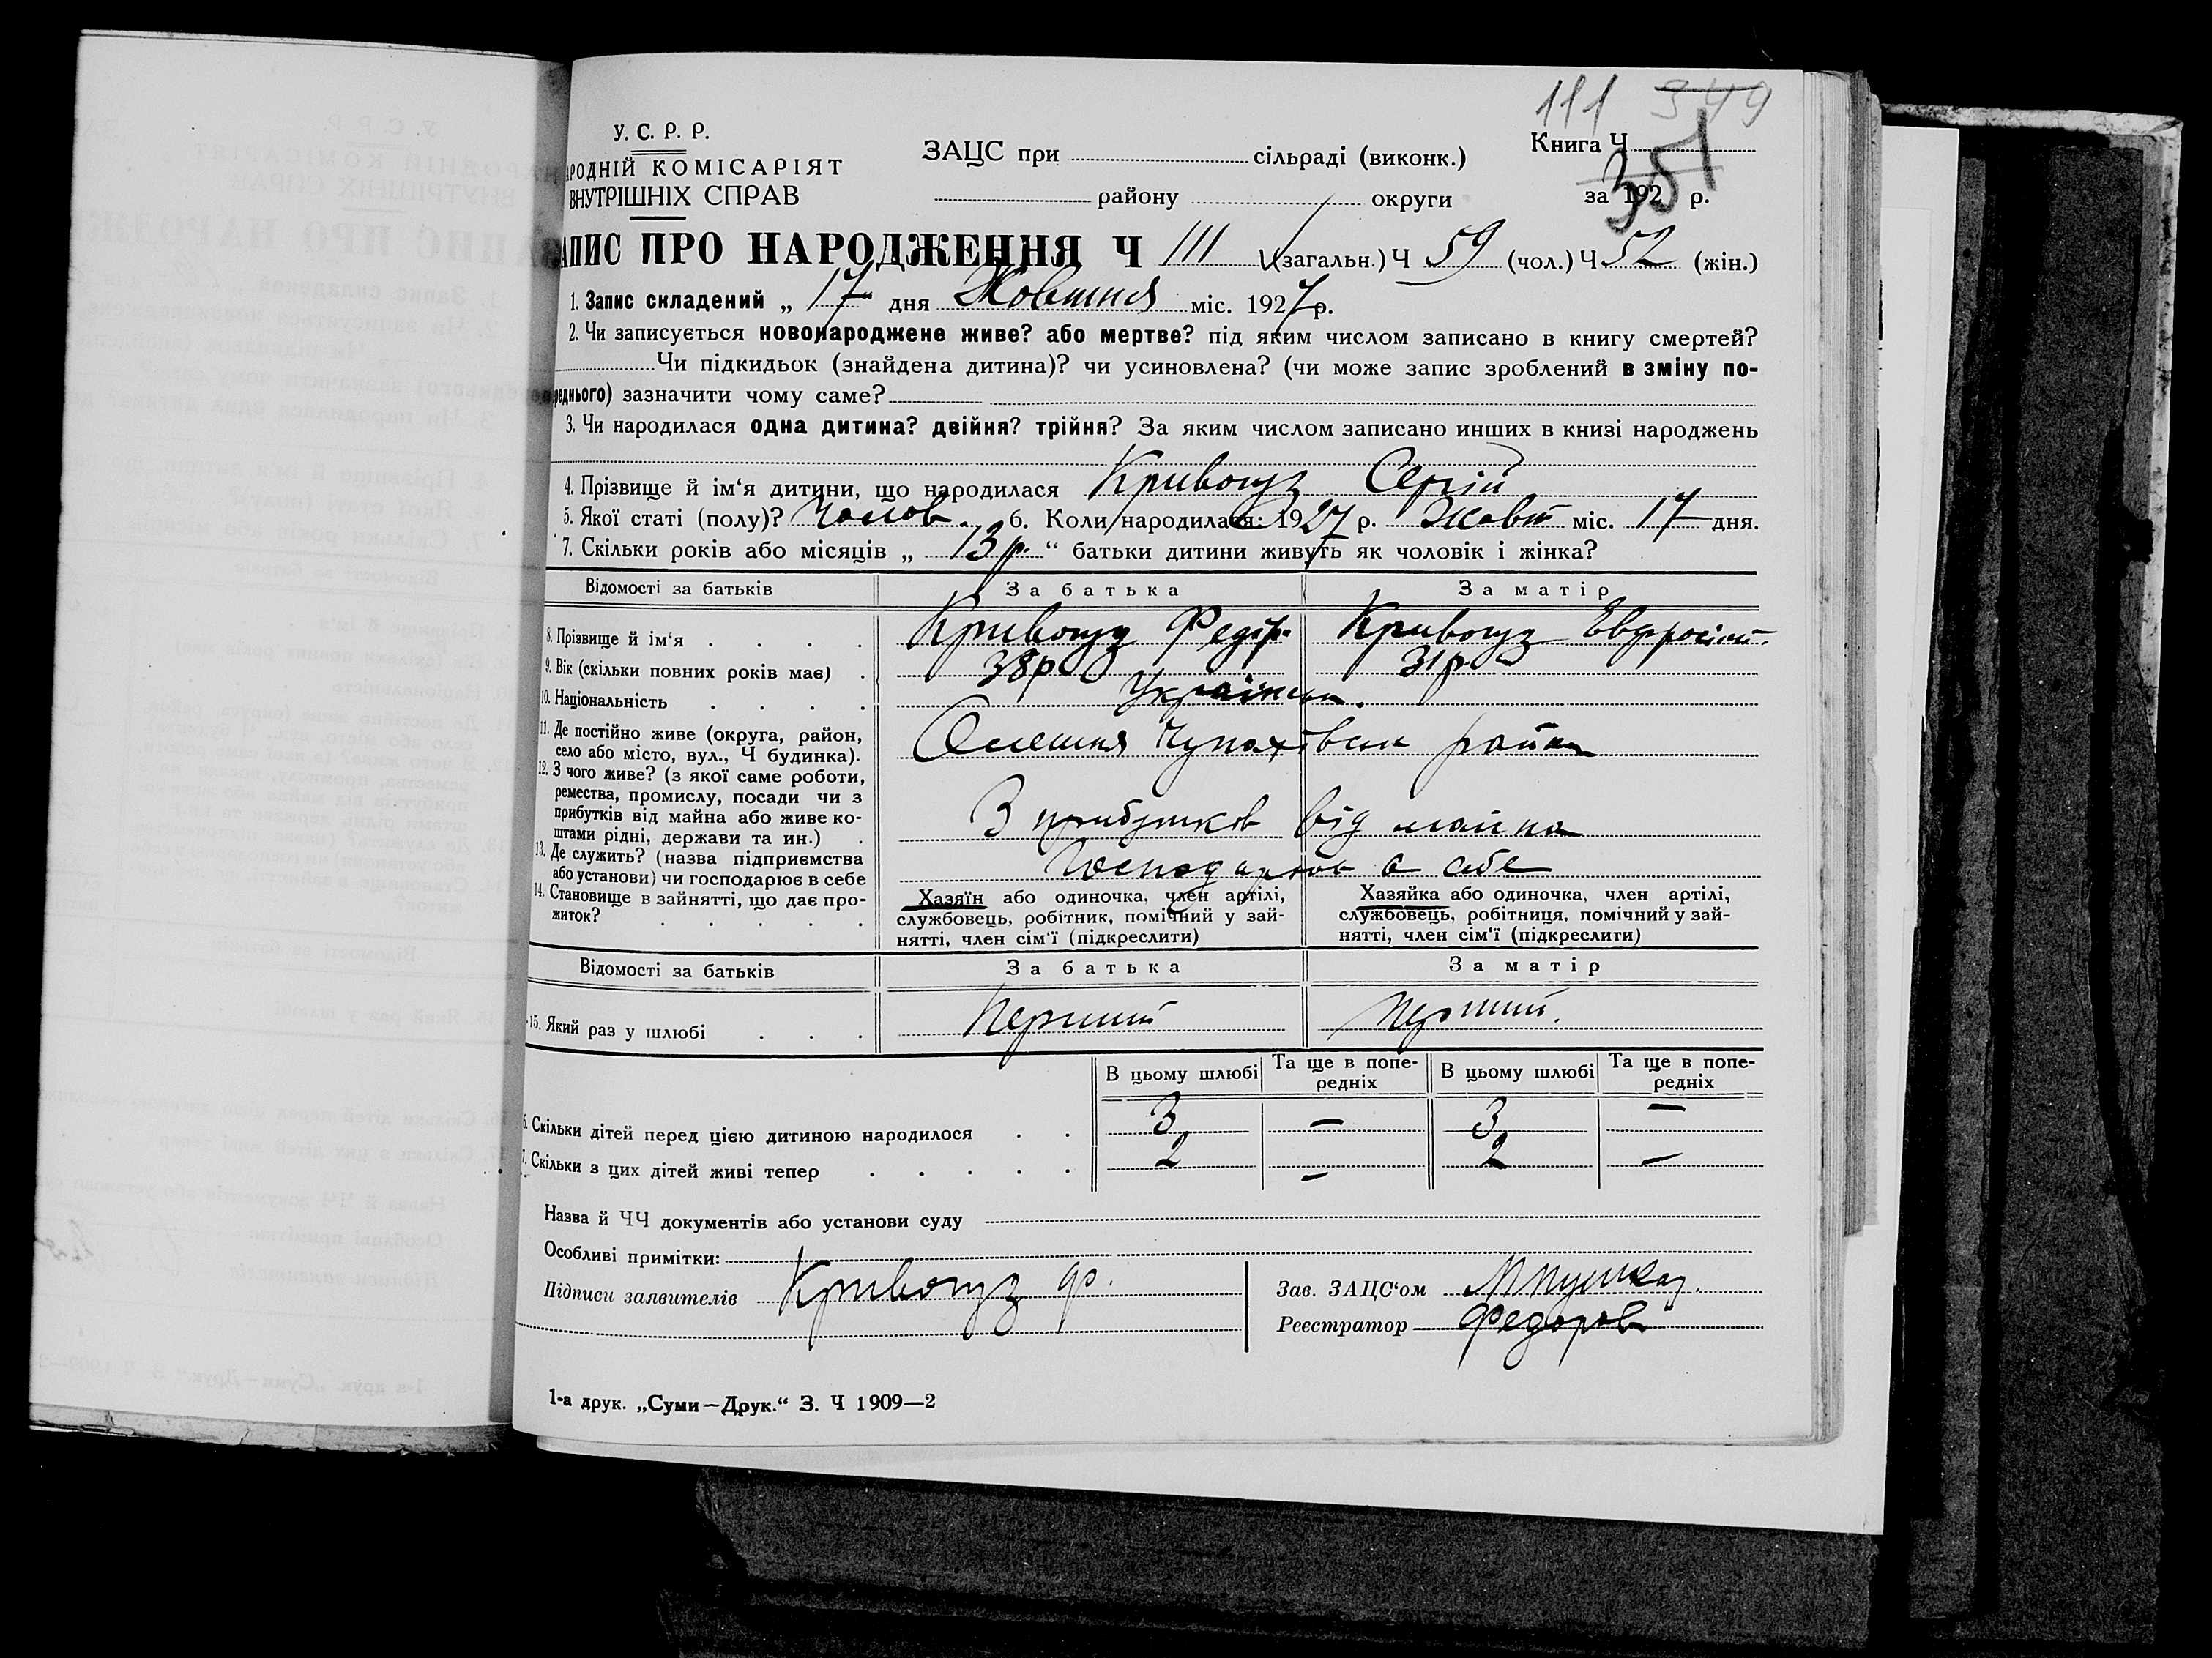 111 349
351
У. С. Р. Р.
АРОДНІЙ КОМІСАРІЯТ
ВНУТРІШНІХ СПРАВ
ЗАЦС при сільраді (виконк.)
району округи
Книга Ч
за 192 р.
АПИС ПРО НАРОДЖЕННЯ Ч 111 (загальн.) Ч 59 (чол.) Ч 52 (жін.)
1. Запис складений „ 17 дня Жовтня міс. 1927 р.
2. Чи записується новонароджене живе? або мертве? під яким числом записано в книгу смертей?
Чи підкидьок (знайдена дитина)? чи усиновлена? (чи може запис зроблений в зміну по-
реднього) зазначити чому саме?
3. Чи народилася одна дитина? двійня? трійня? За яким числом записано инших в книзі народжень
4. Прізвище й ім‘я дитини, що народилася Кривогуз Сергій
5. Якої статі (полу)? Чолов. 6. Коли народилася: 1927 р. Жовт міс. 17 дня.
7. Скільки років або місяців „ 13 р. “ батьки дитини живуть як чоловік і жінка?
Відомості за батьків За батька За матір
8. Прізвище й ім‘я . . . . Кривогуз Федір. Кривогуз Евфросин.
9. Вік (скільки повних років має) . 38р 31р.
10. Національність . . . . Українськ.
11. Де постійно живе (округа, район,
село або місто, вул., Ч будинка).
Олешня Чупахівськ район
12. З чого живе? (з якої саме роботи,
ремества, промислу, посади чи з
прибутків від майна або живе ко-
штами рідні, держави та ин.) .
З прибутков від майна
13. Де служить? (назва підприємства
або установи) чи господарює в себе
Господарюв в себе
14. Становище в зайнятті, що дає про-
житок? . . . . .
Хазяїн або одиночка, член артілі,
службовець, робітник, помічний у зай-
нятті, член сім‘ї (підкреслити)
Хазяйка або одиночка, член артілі,
службовець, робітниця, помічний у зай-
нятті, член сім‘ї (підкреслити)
Відомості за батьків За батька За матір
15. Який раз у шлюбі . . . Перший Перший.
В цьому шлюбі Та ще в попе-
редніх В цьому шлюбі Та ще в попе-
редніх
6. Скільки дітей перед цією дитиною народилося . . 3 — 3 —
7. Скільки з цих дітей живі тепер . . . . . 2 — 2 —
Назва й ЧЧ документів або установи суду
Особливі примітки:
Підписи заявителів Кривогуз Ф.
Зав. ЗАЦС‘ом
Реєстратор Федоров
1-а друк. „Суми—Друк.“ З. Ч 1909—2